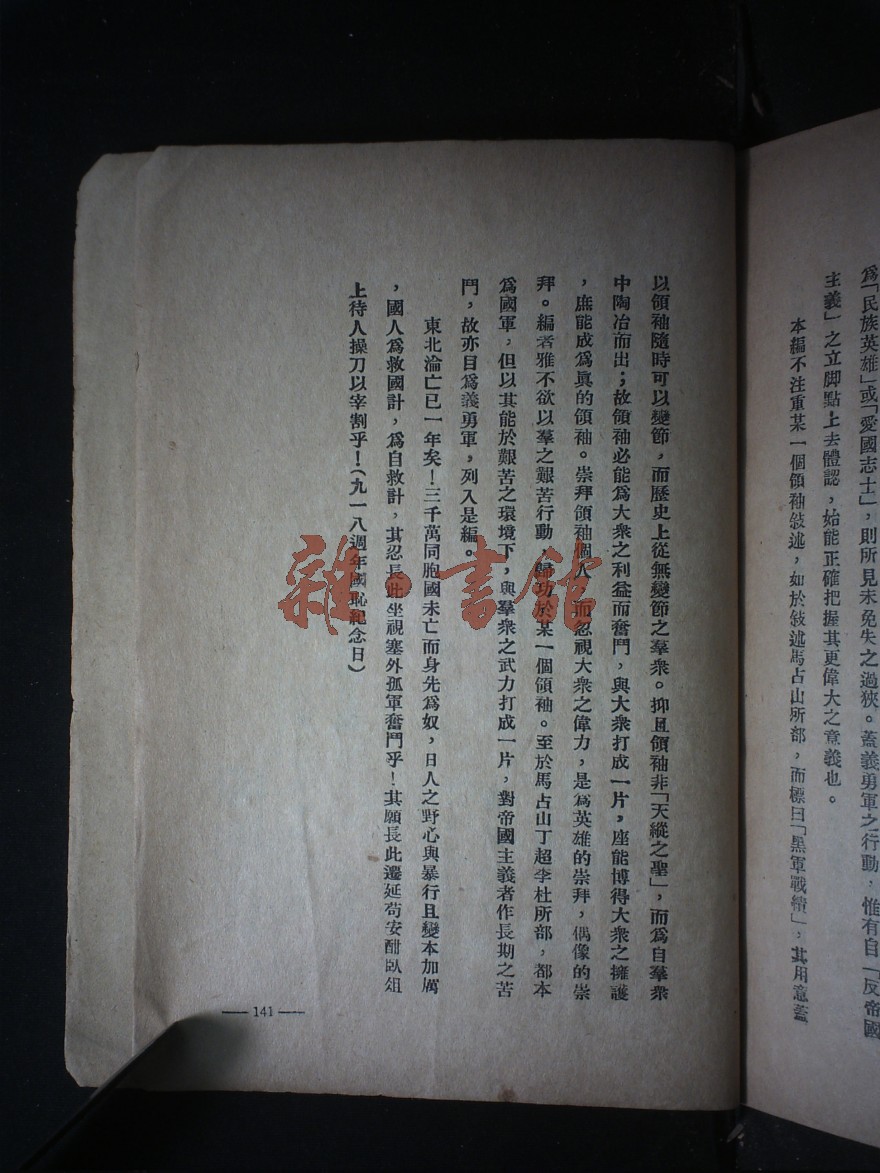 爲「民族英雄」或「愛國志士」，則所見未免失之過狹。蓋義勇軍之行動，惟有自「反帝國
主義」之立脚點上去體認，始能正確把握其更偉大之意義也。
本編不注重某一個領袖敍述，如於敍述馬占山所部，而標曰「黑軍戰績」，其用意蓋
以領袖隨時可以變節，而歷史上從無變節之羣衆。抑且領袖非「天縱之聖」，而爲自羣衆
中陶冶而出；故領袖必能爲大衆之利益而奮鬥，與大衆打成一片，座能博得大衆之擁護
，庶能成爲眞的領袖。崇拜領袖個人，而忽視大衆之偉力，是爲英雄的崇拜，偶像的崇
拜。編者雅不欲以羣之艱苦行動，歸功於某一個領袖。至於馬占山丁超李杜所部，都本
爲國軍，但以其能於艱苦之環境下，與羣衆之武力打成一片，對帝國主義者作長期之苦
鬥，故亦目爲義勇軍，列入是編。
東北淪亡已一年矣！三千萬同胞國未亡而身先爲奴，日人之野心與暴行且變本加厲
，國人爲救國計，爲自救計，其忍長此坐視塞外孤軍奮鬥乎！其願長此遷延苟安酣臥俎
上待人操刀以宰割乎！（九一八週年國恥紀念日）
— 141 —
雜·書館